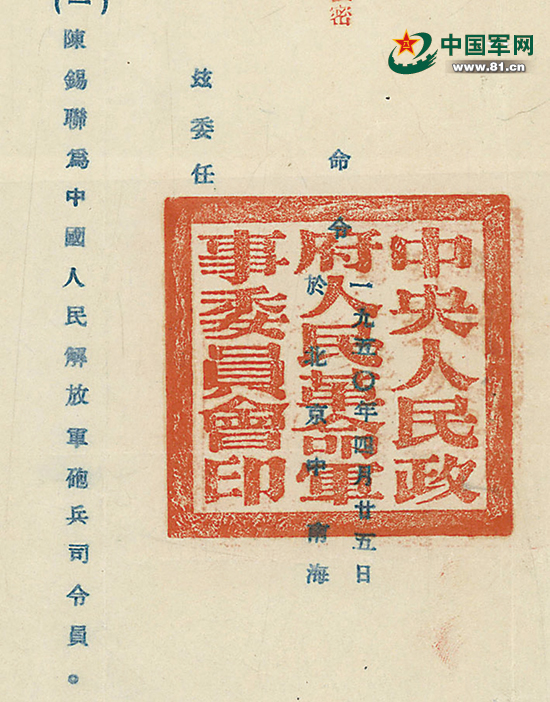 中国军网
www.81.cn
密
命令
一九五〇年四月廿五日
於北京中南海
中央人民政
府人民革命軍
事委員會印
兹委任
陳錫聯爲中國人民解放軍砲兵司令員。